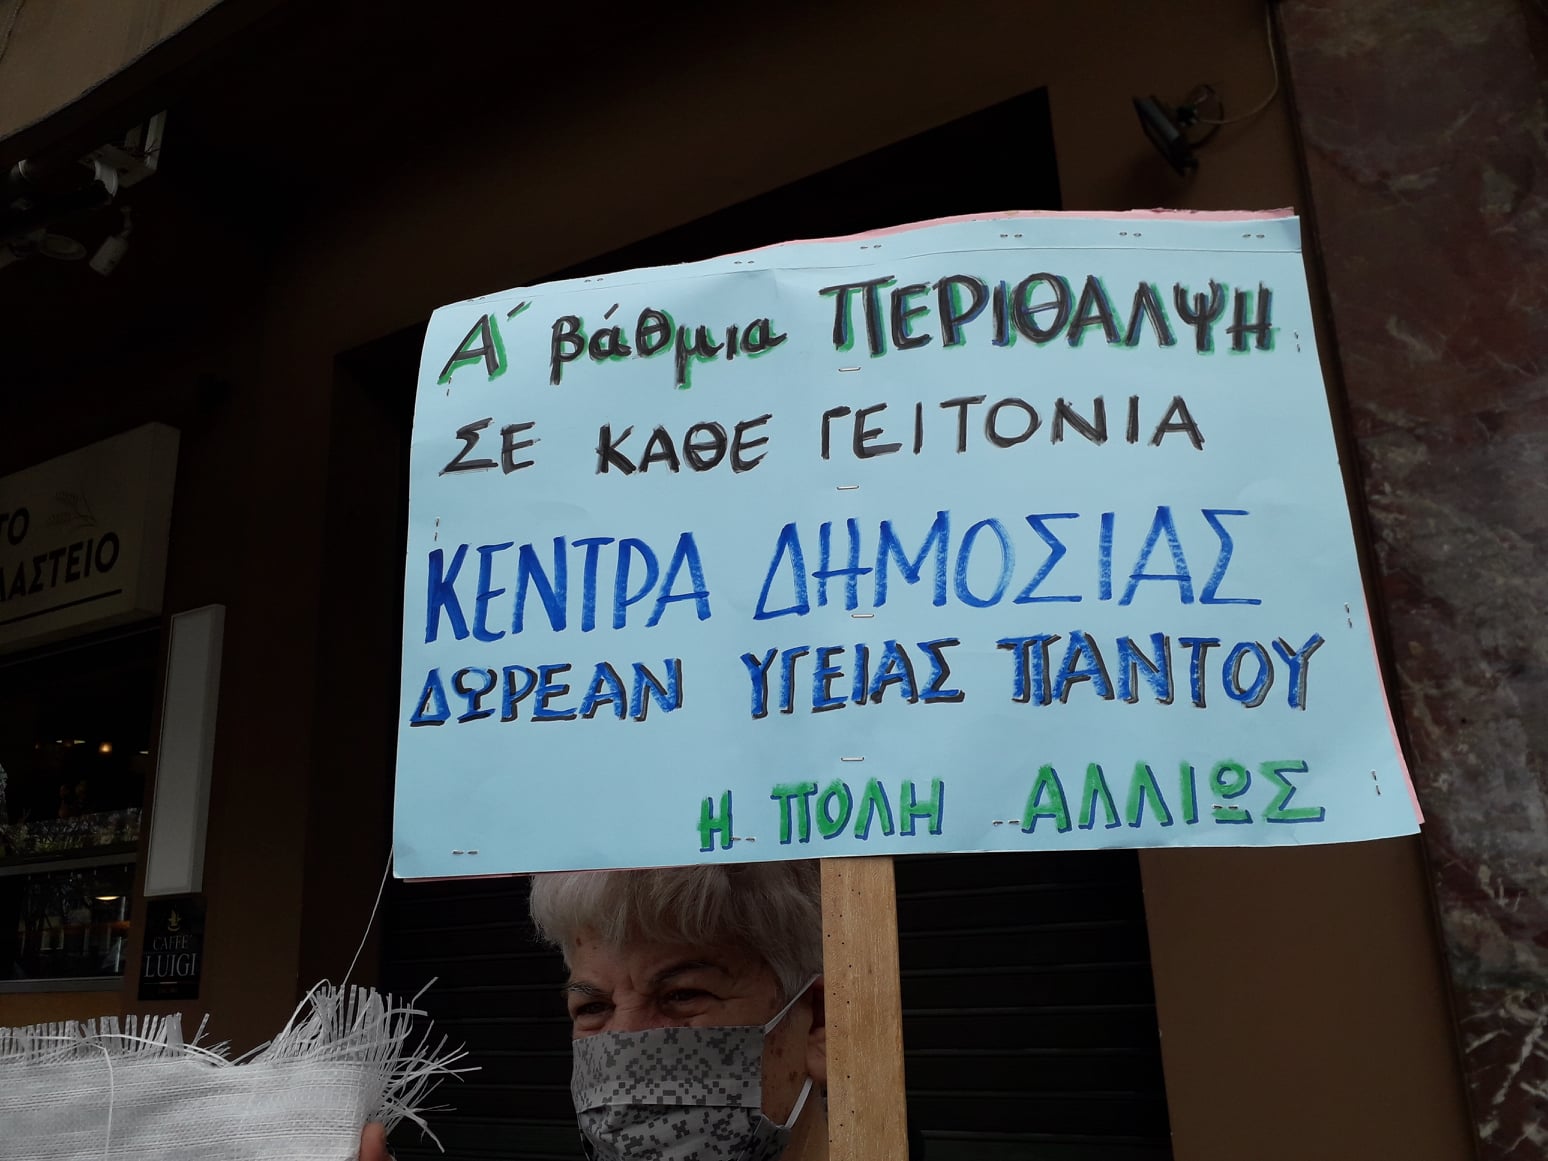 Α΄ βάθμια ΠΕΡΙΘΑΛΨΗ
ΣΕ ΚΑΘΕ ΓΕΙΤΟΝΙΑ
ΚΕΝΤΡΑ ΔΗΜΟΣΙΑΣ
ΔΩΡΕΑΝ ΥΓΕΙΑΣ ΠΑΝΤΟΥ
Η ΠΟΛΗ ΑΛΛΙΩΣ
ΤΟ
ΛΑΣΤΕΙΟ
CAFFÈ
LUIGI